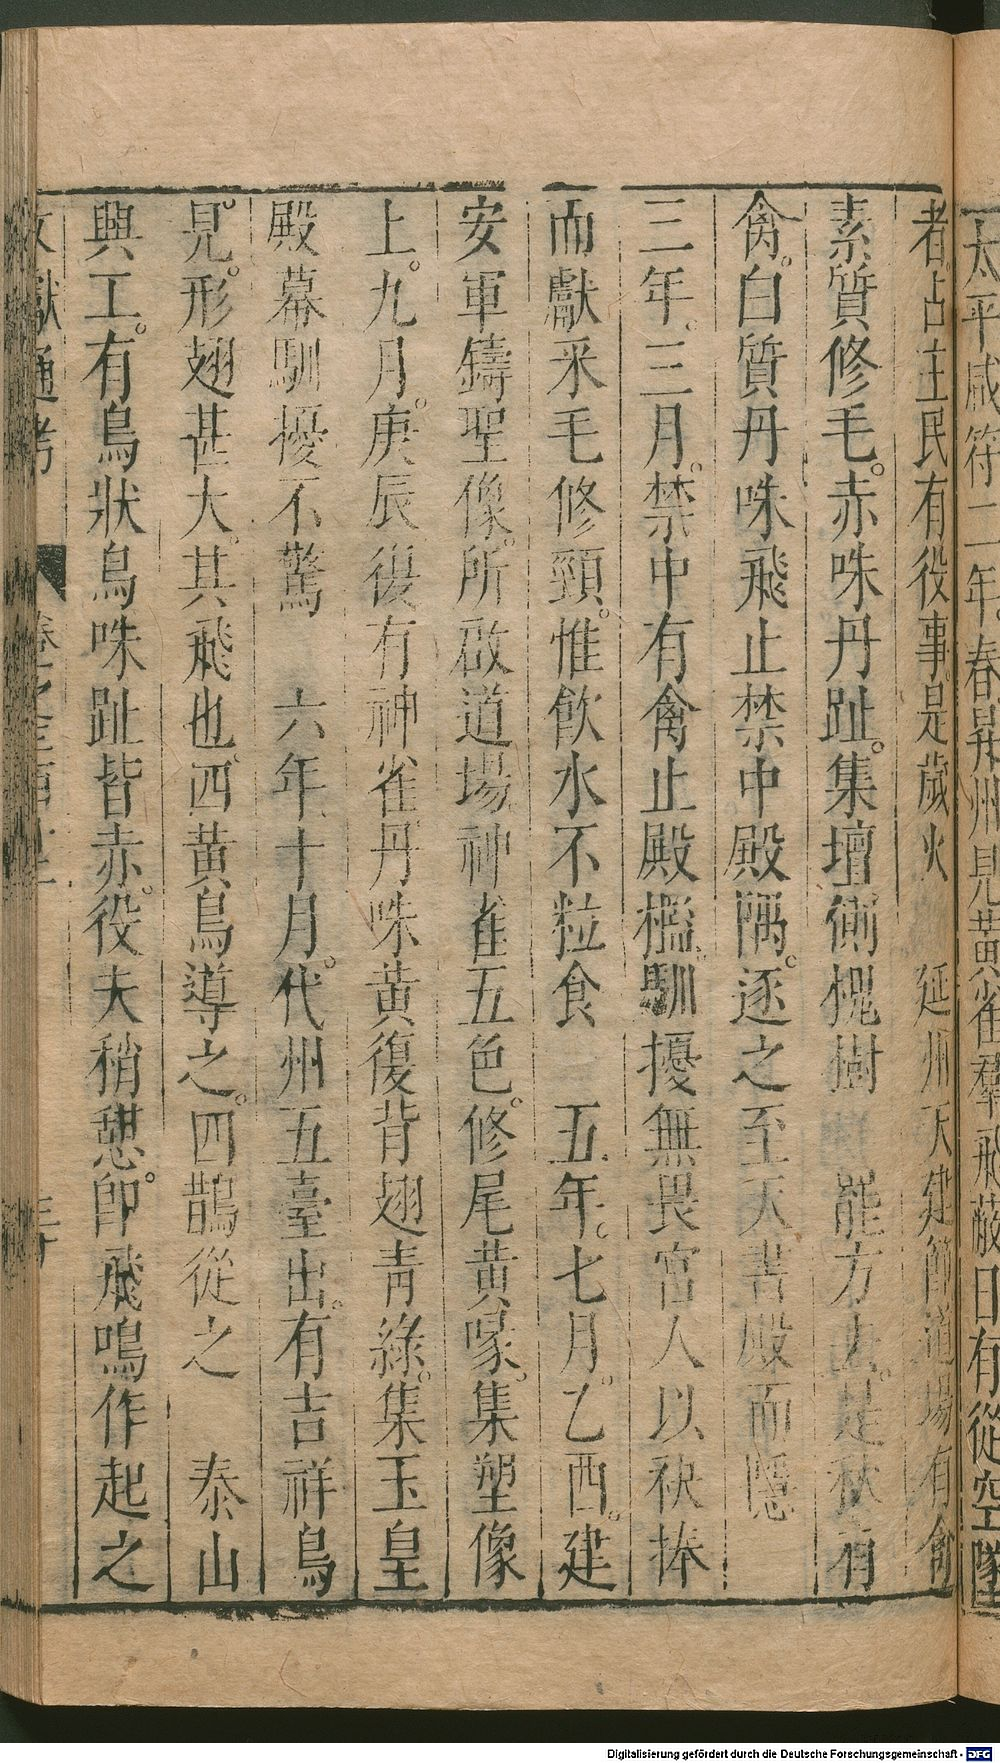 太平咸符二年。春昇州見黄雀羣飛蔽日有從空墜
者占主民有役事是歲火　延州天建節道場有禽
素質修毛。赤咮丹趾。集壇側槐樹　方去。是秋有
禽。白質丹咮飛止禁中殿隅。逐之至天書殿而隱
三年。三月。禁中有禽止殿檻馴擾無畏宮人以袂捧
而獻采毛修頸。惟飲水不粒食　五年。七月乙酉。建
安軍鑄聖像。所啟道場神雀五色。修尾黄喙。集塑像
上。九月。庚辰復有神雀丹咮黄復背翅青綠。集玉皇
殿幕馴擾不驚　六年十月。代州五臺出。有吉祥鳥
見。形翅甚大。其飛也。四黄鳥導之。四鵲從之　泰山
興工。有鳥狀鳥咮趾皆赤。役夫稍憩。卽飛鳴作起之
文獻通考　卷之三百十二